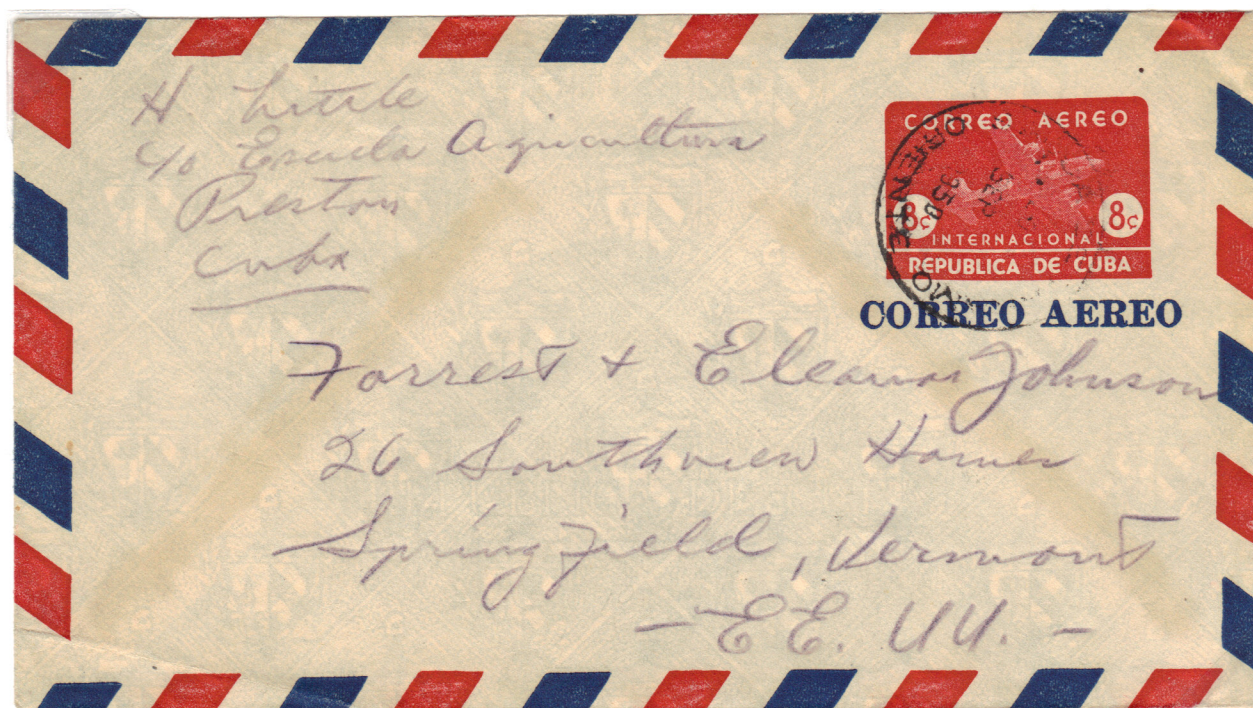 H Little
c/o Escuela Agricultura
Preston
Cuba
CORREO AEREO
8¢ 8¢
INTERNACIONAL
REPUBLICA DE CUBA
ORIENTE
CORREO AEREO
Forrest + Eleanor Johnson
26 Southview Homes
Springfield, Vermont
- EE. UU. -